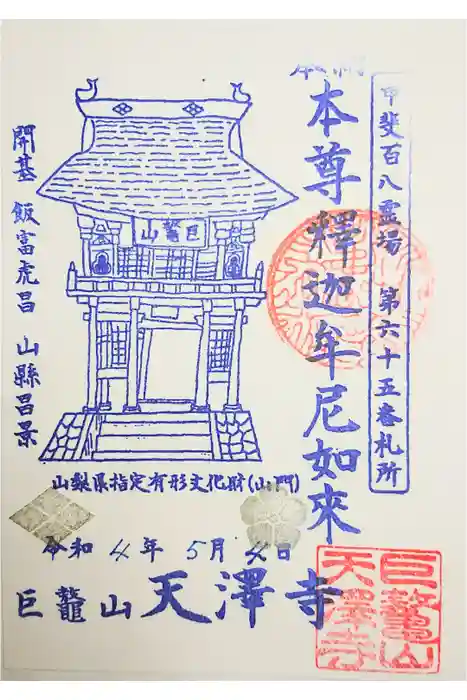 甲斐百八霊場 第六十五番札所
奉納
本尊釋迦牟尼如來
山鼇巨
開基 飯富虎昌 山縣昌景
山梨県指定有形文化財(山門)
令和 4年 5月 4日
巨鼇山 天澤寺
巨鼇山
天澤寺